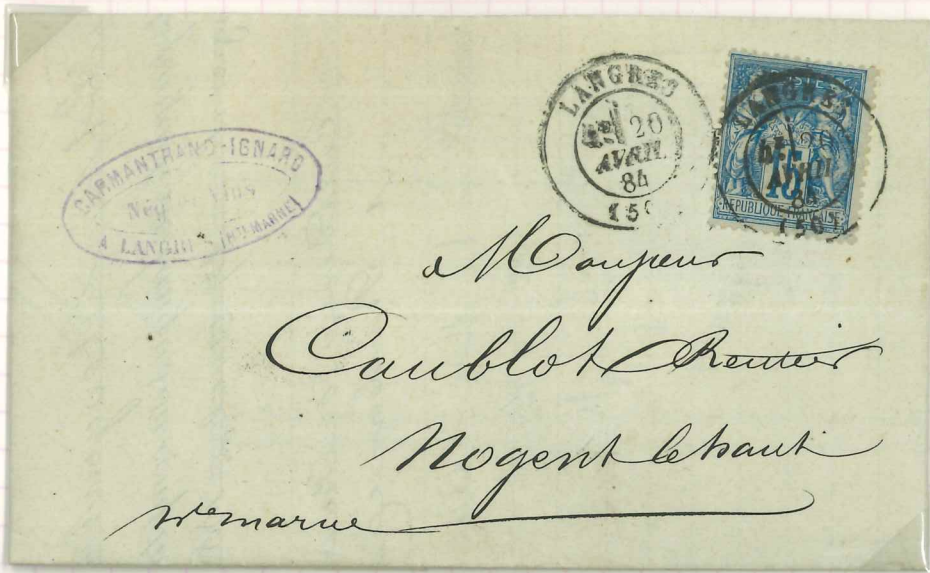 CARMANTRAND-IGNARD
Nég
A LANGRES (Hte MARNE)
LANGRES
20
AVRIL
84
LANGRES
AVRIL
84
15
REPUBLIQUE FRANCAISE
a Monsieur
Caublot Rentier
Nogent le haut
hte marne